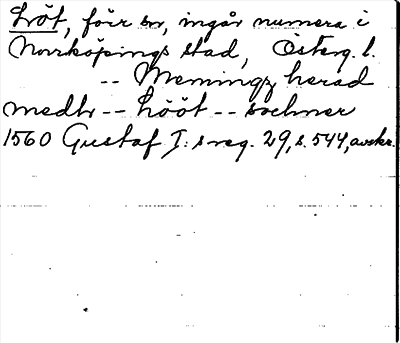 Löt, förr sn, ingår numera i
Norrköpings stad, Österg. l.
-- Memingz herad
medh -- Lööt -- sochner
1560 Gustaf I: s reg. 29, s. 544, avskr.